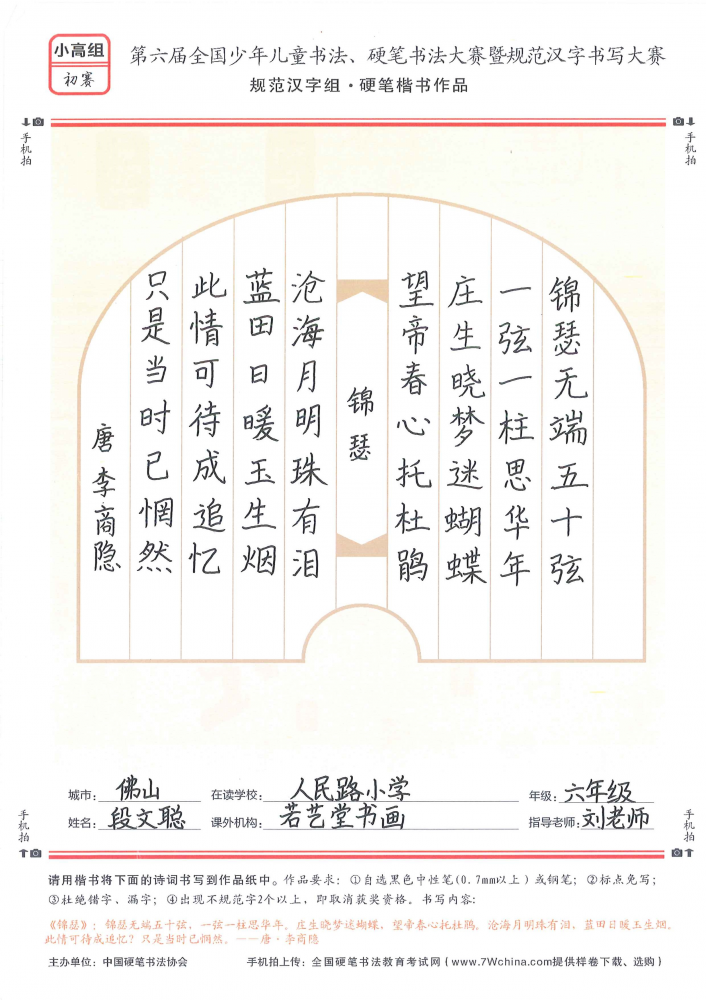 小高组
初赛
第六届全国少年儿童书法、硬笔书法大赛暨规范汉字书写大赛
规范汉字组·硬笔楷书作品
手机拍
手机拍
锦瑟无端五十弦
一弦一柱思华年
庄生晓梦迷蝴蝶
望帝春心托杜鹃
锦瑟
沧海月明珠有泪
蓝田日暖玉生烟
此情可待成追忆
只是当时已惘然
唐李商隐
城市：佛山 在读学校：人民路小学 年级：六年级
姓名：段文聪 课外机构：若艺堂书画 指导老师：刘老师
手机拍
手机拍
请用楷书将下面的诗词书写到作品纸中。作品要求：①自选黑色中性笔(0.7mm以上)或钢笔；②标点免写；
③杜绝错字、漏字；④出现不规范字2个以上，即取消获奖资格。书写内容：
《锦瑟》：锦瑟无端五十弦，一弦一柱思华年。庄生晓梦迷蝴蝶，望帝春心托杜鹃。沧海月明珠有泪，蓝田日暖玉生烟。
此情可待成追忆？只是当时已惘然。——唐·李商隐
主办单位：中国硬笔书法协会 手机拍上传：全国硬笔书法教育考试网（www.7Wchina.com提供样卷下载、选购）